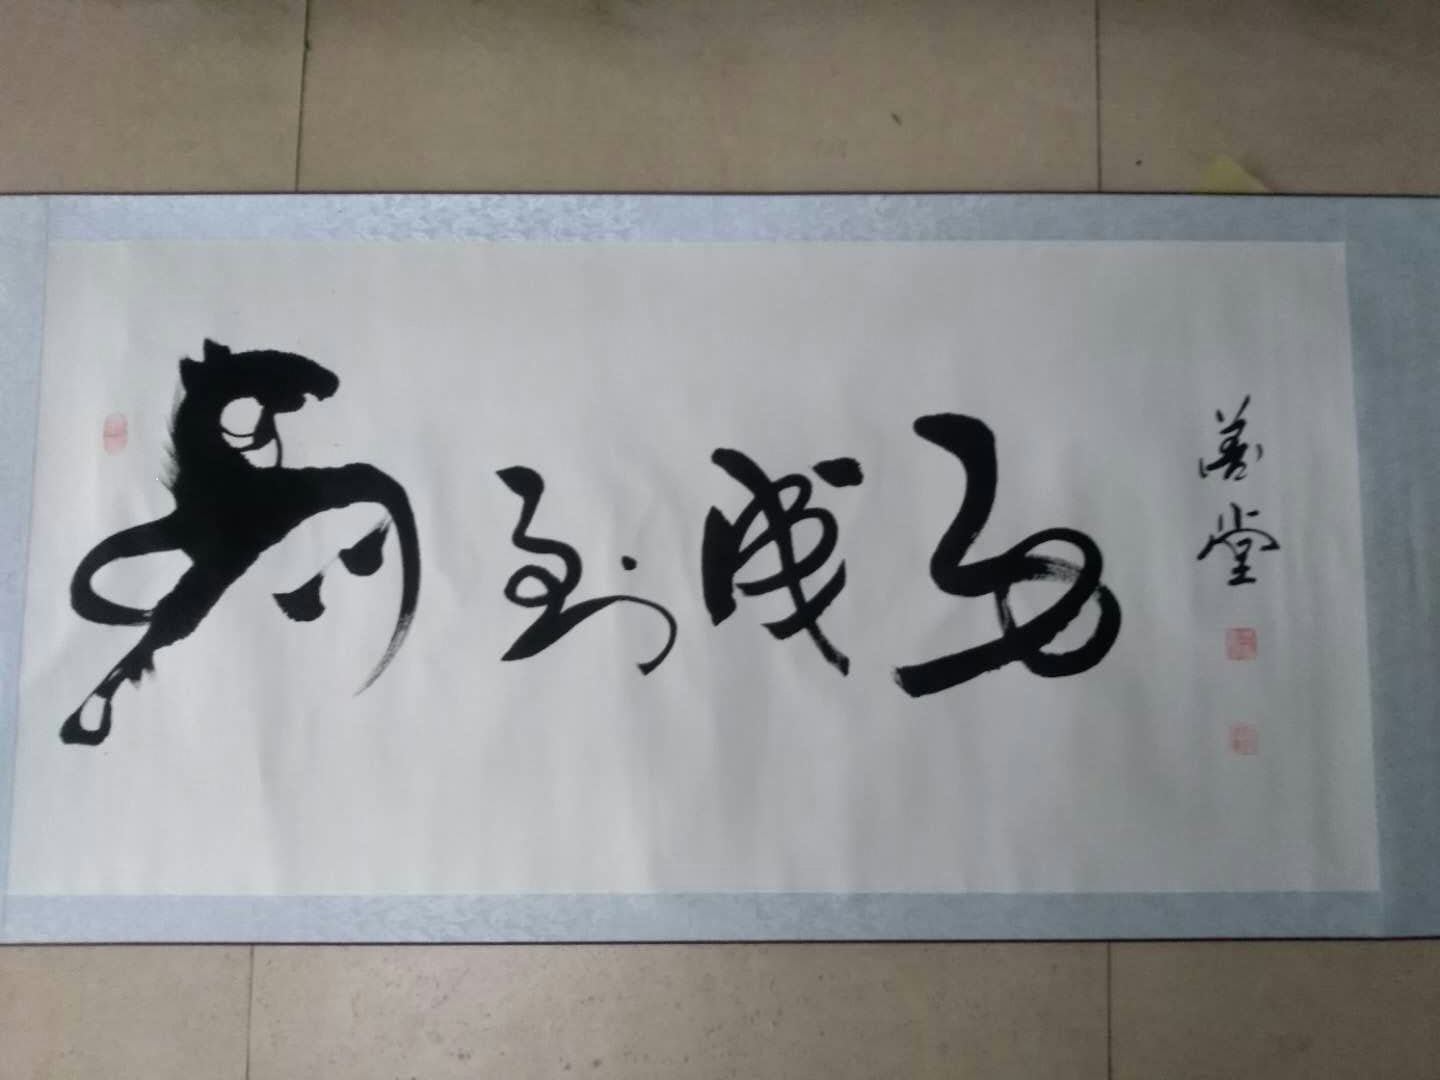 马到成功
善堂